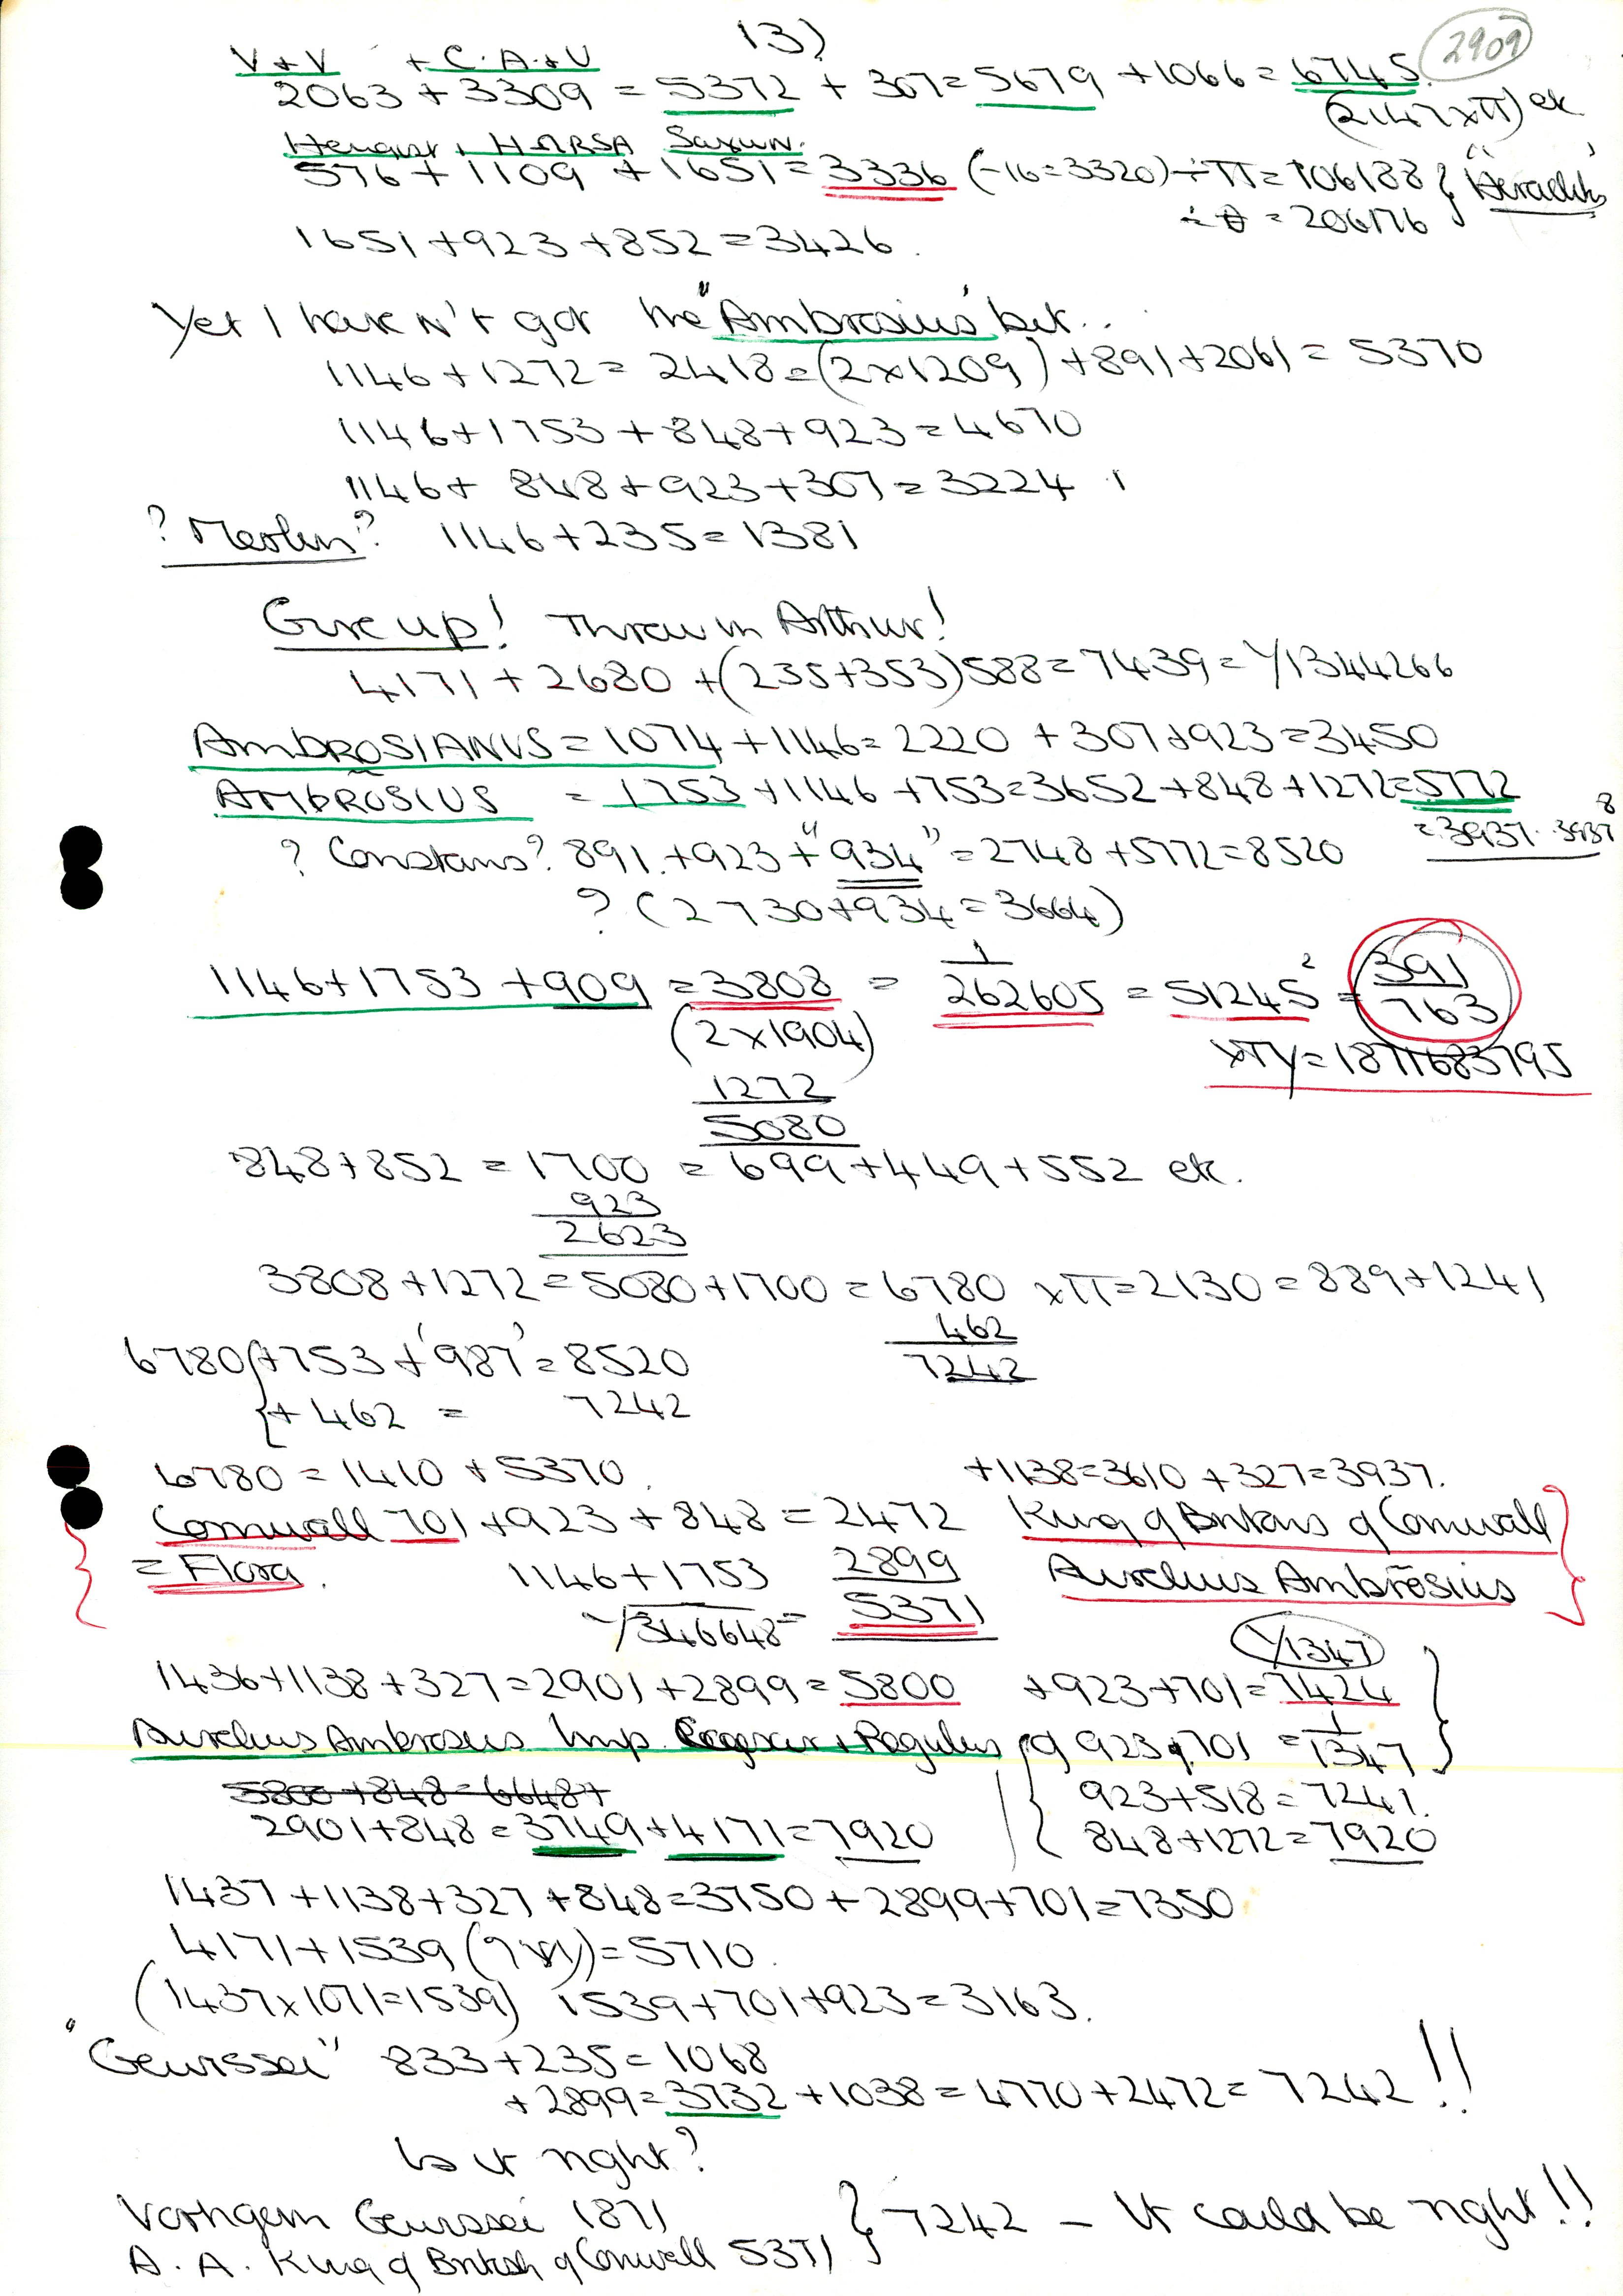 13)
2909
V + V + C. A. + U
2063 + 3309 = 5372 + 307 = 5679 + 1066 = 6745.
(2147 x π) etc
Hengist + HORSA Saxon.
576 + 1109 + 1651 = 3336 (-16 = 3320) ÷ π = 106188 } "Heraclits'
÷ θ = 206176
1651 + 923 + 852 = 3426.
Yet I haven't got the "Ambrosius' bit..
1146 + 1272 = 2418 = (2x1209) + 891 + 2061 = 5370
1146 + 1753 + 848 + 923 = 4670
1146 + 848 + 923 + 307 = 3224
? Merlin? 1146 + 235 = 1381
Give up! Throw in Arthur!
4171 + 2680 + (235+353) 588 = 7439 = 1/1344266
AMBROSIANUS = 1074 + 1146 = 2220 + 307 + 923 = 3450
AMBRŌSIUS = 1753 + 1146 + 753 = 3652 + 848 + 1272 = 5772
= 3937. 3937 8
? Constans? 891. + 923 + "934" = 2748 + 5772 = 8520
? (2730 + 934 = 3664)
1146 + 1753 + 909 = 3808 = 1/262605 = 51245² = 391/763
(2 x 1904)
xπy = 1871683795
1272
5080
848 + 852 = 1700 = 699 + 449 + 552 etc.
923
2623
3808 + 1272 = 5080 + 1700 = 6780 xπ = 2130 = 889 + 1241
462
7242
6780 { + 753 + '987' = 8520
+ 462 = 7242
6780 = 1410 + 5370.
+ 1138 = 3610 + 327 = 3937.
Cornwall 701 + 923 + 848 = 2472 King of Britons of Cornwall
= Flora. 1146 + 1753 2899 Aurelius Ambrōsius
1/346648 = 5371
1/1347
1436 + 1138 + 327 = 2901 + 2899 = 5800 + 923 + 701 = 7424
Aurelius Ambrosius Imp. Caesar + Regulus of 923 + 701 = 1/1347
5800 + 848 = 6648 +
923 + 518 = 7241.
2901 + 848 = 3749 + 4171 = 7920
848 + 1272 = 7920
1437 + 1138 + 327 + 848 = 3750 + 2899 + 701 = 7350
4171 + 1539 = 5710.
(1437 x 1071 = 1539) 1539 + 701 + 923 = 3163.
"Gewissei" 833 + 235 = 1068
+ 2899 = 3732 + 1038 = 4770 + 2472 = 7242 !!
Is it right?
Vorthgern Gewissei 1871
A. A. King of British of Cornwall 5371 } 7242 - It could be right!!